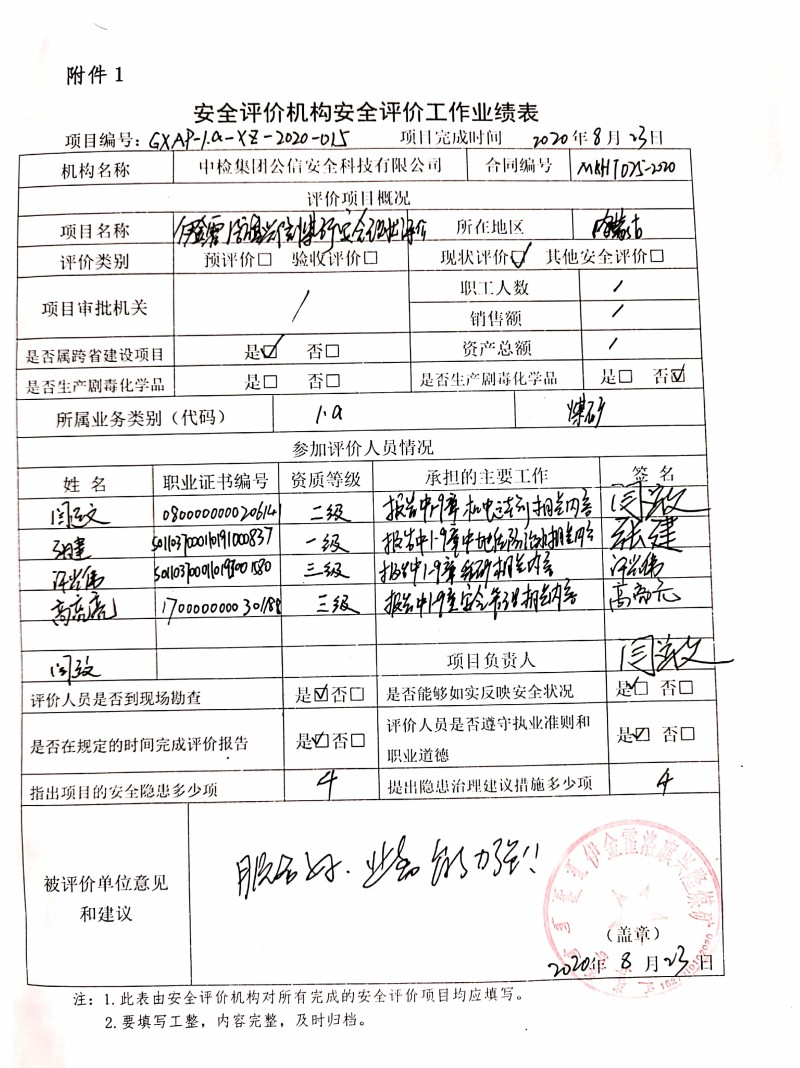 附件1
安全评价机构安全评价工作业绩表
项目编号：GXAP-1.a-XZ-2020-015 项目完成时间 2020年8月23日
机构名称 中检集团公信安全科技有限公司 合同编号 MKHT025-2020
评价项目概况
项目名称 所在地区 内蒙古
评价类别 预评价□ 验收评价□ 现状评价☑ 其他安全评价□
项目审批机关 / 职工人数 /
销售额 /
是否属跨省建设项目 是☑ 否□ 资产总额 /
是否生产剧毒化学品 是□ 否□ 是否生产剧毒化学品 是□ 否☑
所属业务类别（代码） 1.a 煤矿
参加评价人员情况
姓名 职业证书编号 资质等级 承担的主要工作 签名
二级 报告中1-9章机电运输相关内容
张建 一级 报告中1-9章中地质防治水相关内容 张建
许兴伟 三级 报告中1-9章 相关内容 许兴伟
高商元 1700000000301188 三级 报告中1-9章安全管理相关内容 高商元
项目负责人
评价人员是否到现场勘查 是☑否□ 是否能够如实反映安全状况 是☑ 否□
是否在规定的时间完成评价报告 是☑否□ 评价人员是否遵守执业准则和
职业道德 是☑ 否□
指出项目的安全隐患多少项 4 提出隐患治理建议措施多少项 4
被评价单位意见
和建议
服务好、业务能力强！！
伊金霍洛旗兴隆煤矿
（盖章）
2020年8月23日
注：1.此表由安全评价机构对所有完成的安全评价项目均应填写。
2.要填写工整，内容完整，及时归档。